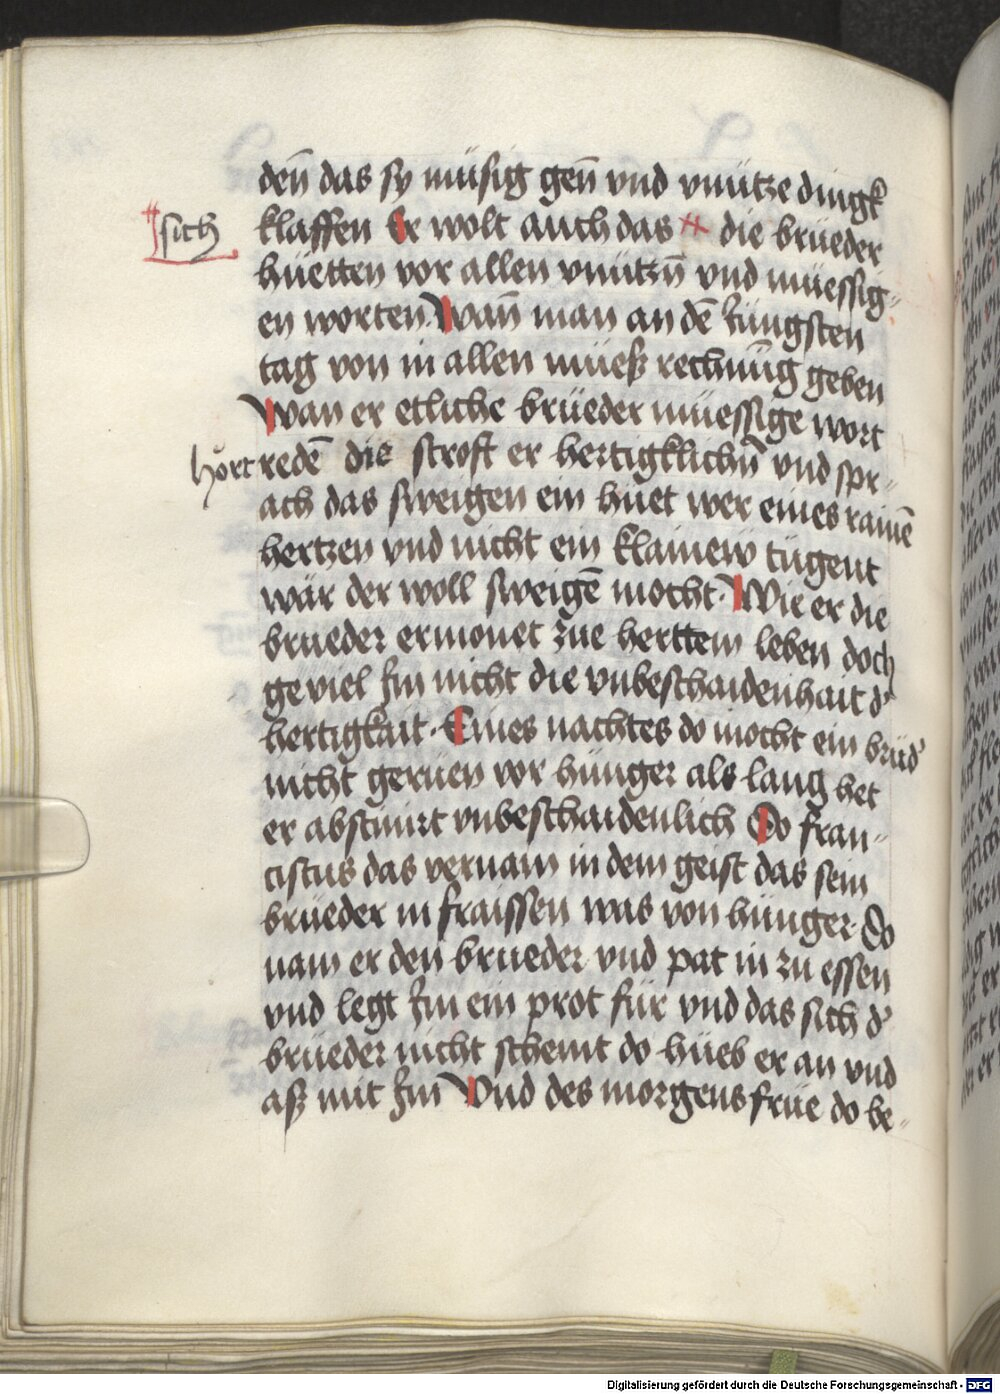 den̄ das sy müsig gen̄ vnd vnütze dingk
klaffen Er wolt auch das ⌗ die brüeder
⌗ sich
hüetten vor allen vnützn̄ vnd müessig-
en worten Wan̄ man an dē Jüngsten
tag von in allen müeß rechnūg geben
Wan er etliche brüeder müessige wort
hort redē die stroft er hertigklichn̄ vnd spr-
ach das sweigen ein huet wer eines rainē
hertzen vnd nicht ein klainew tugent
wär der woll sweigē mocht. Wie er die
brueder ermonet zue herttem leben doch
geviel Jm nicht die vnbeschaidenhait d'
hertigkait. Eines nachtes do mocht ein brüd'
nicht geruen vor hunger als lang het
er abstinirt vnbeschaidenlich Do fran-
ciscus das vernam in dem geist das sein
brüeder in fraissen was von hunger Do
nam er den brueder vnd pat in zu essen
vnd legt Jm ein prot für vnd das sich d'
brüeder nicht schemt do hüeb er an vnd
aß mit Jm Vnd des morgens früe do be-
Digitalisierung gefördert durch die Deutsche Forschungsgemeinschaft - DFG